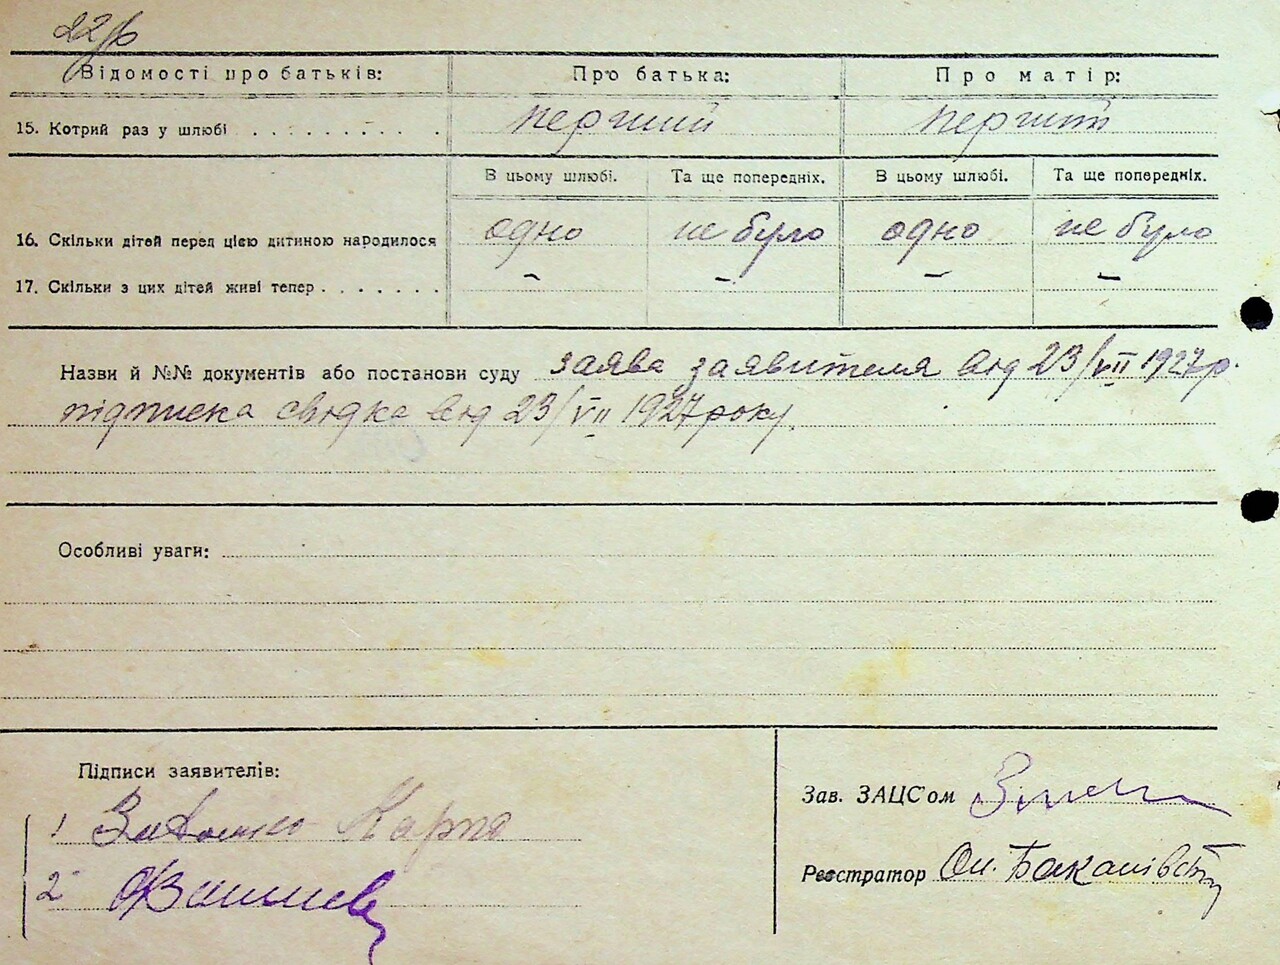 Відомості про батьків: Про батька: Про матір:
15. Котрий раз у шлюбі . . . . . . . . . . перший перший
В цьому шлюбі. Та ще попередніх. В цьому шлюбі. Та ще попередніх.
16. Скільки дітей перед цією дитиною народилося одно не було одно не було
17. Скільки з цих дітей живі тепер . . . . . . . – – – –
Назви й №№ документів або постанови суду заява заявителя від 23/VII 1927 р.
підписка свідка від 23/VII 1927 року.
Особливі уваги:
Підписи заявителів:
Зав. ЗАЦС'ом
1 Карпо
Реєстратор Ол.
2